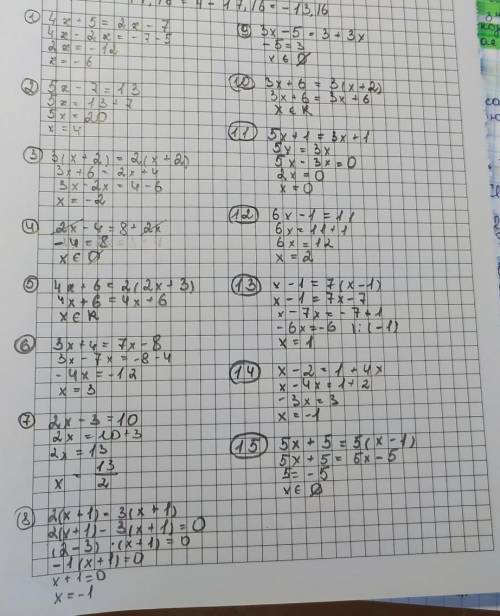 = 4 - 17,16 = -13,16
① 4x + 5 = 2x - 7
4x - 2x = -7 - 5
2x = -12
x = -6
② 5x - 7 = 13
5x = 13 + 7
5x = 20
x = 4
③ 3(x + 2) = 2(x + 2)
3x + 6 = 2x + 4
3x - 2x = 4 - 6
x = -2
④ 2x - 4 = 8 + 2x
-4 = 8
x ∈ ∅
⑤ 4x + 6 = 2(2x + 3)
4x + 6 = 4x + 6
x ∈ R
⑥ 3x + 4 = 7x - 8
3x - 7x = -8 - 4
-4x = -12
x = 3
⑦ 2x - 3 = 10
2x = 10 + 3
2x = 13
x = 13/2
⑧ 2(x + 1) = 3(x + 1)
2(x + 1) - 3(x + 1) = 0
(2 - 3) · (x + 1) = 0
-1(x + 1) = 0
x + 1 = 0
x = -1
⑨ 3x - 5 = 3 + 3x
-5 = 3
x ∈ ∅
⑩ 3x + 6 = 3(x + 2)
3x + 6 = 3x + 6
x ∈ R
⑪ 5x + 1 = 3x + 1
5x = 3x
5x - 3x = 0
2x = 0
x = 0
⑫ 6x - 1 = 11
6x = 11 + 1
6x = 12
x = 2
⑬ x - 1 = 7(x - 1)
x - 1 = 7x - 7
x - 7x = -7 + 1
-6x = -6 |: (-1)
x = 1
⑭ x - 2 = 1 + 4x
x - 4x = 1 + 2
-3x = 3
x = -1
⑮ 5x + 5 = 5(x - 1)
5x + 5 = 5x - 5
5 = -5
x ∈ ∅